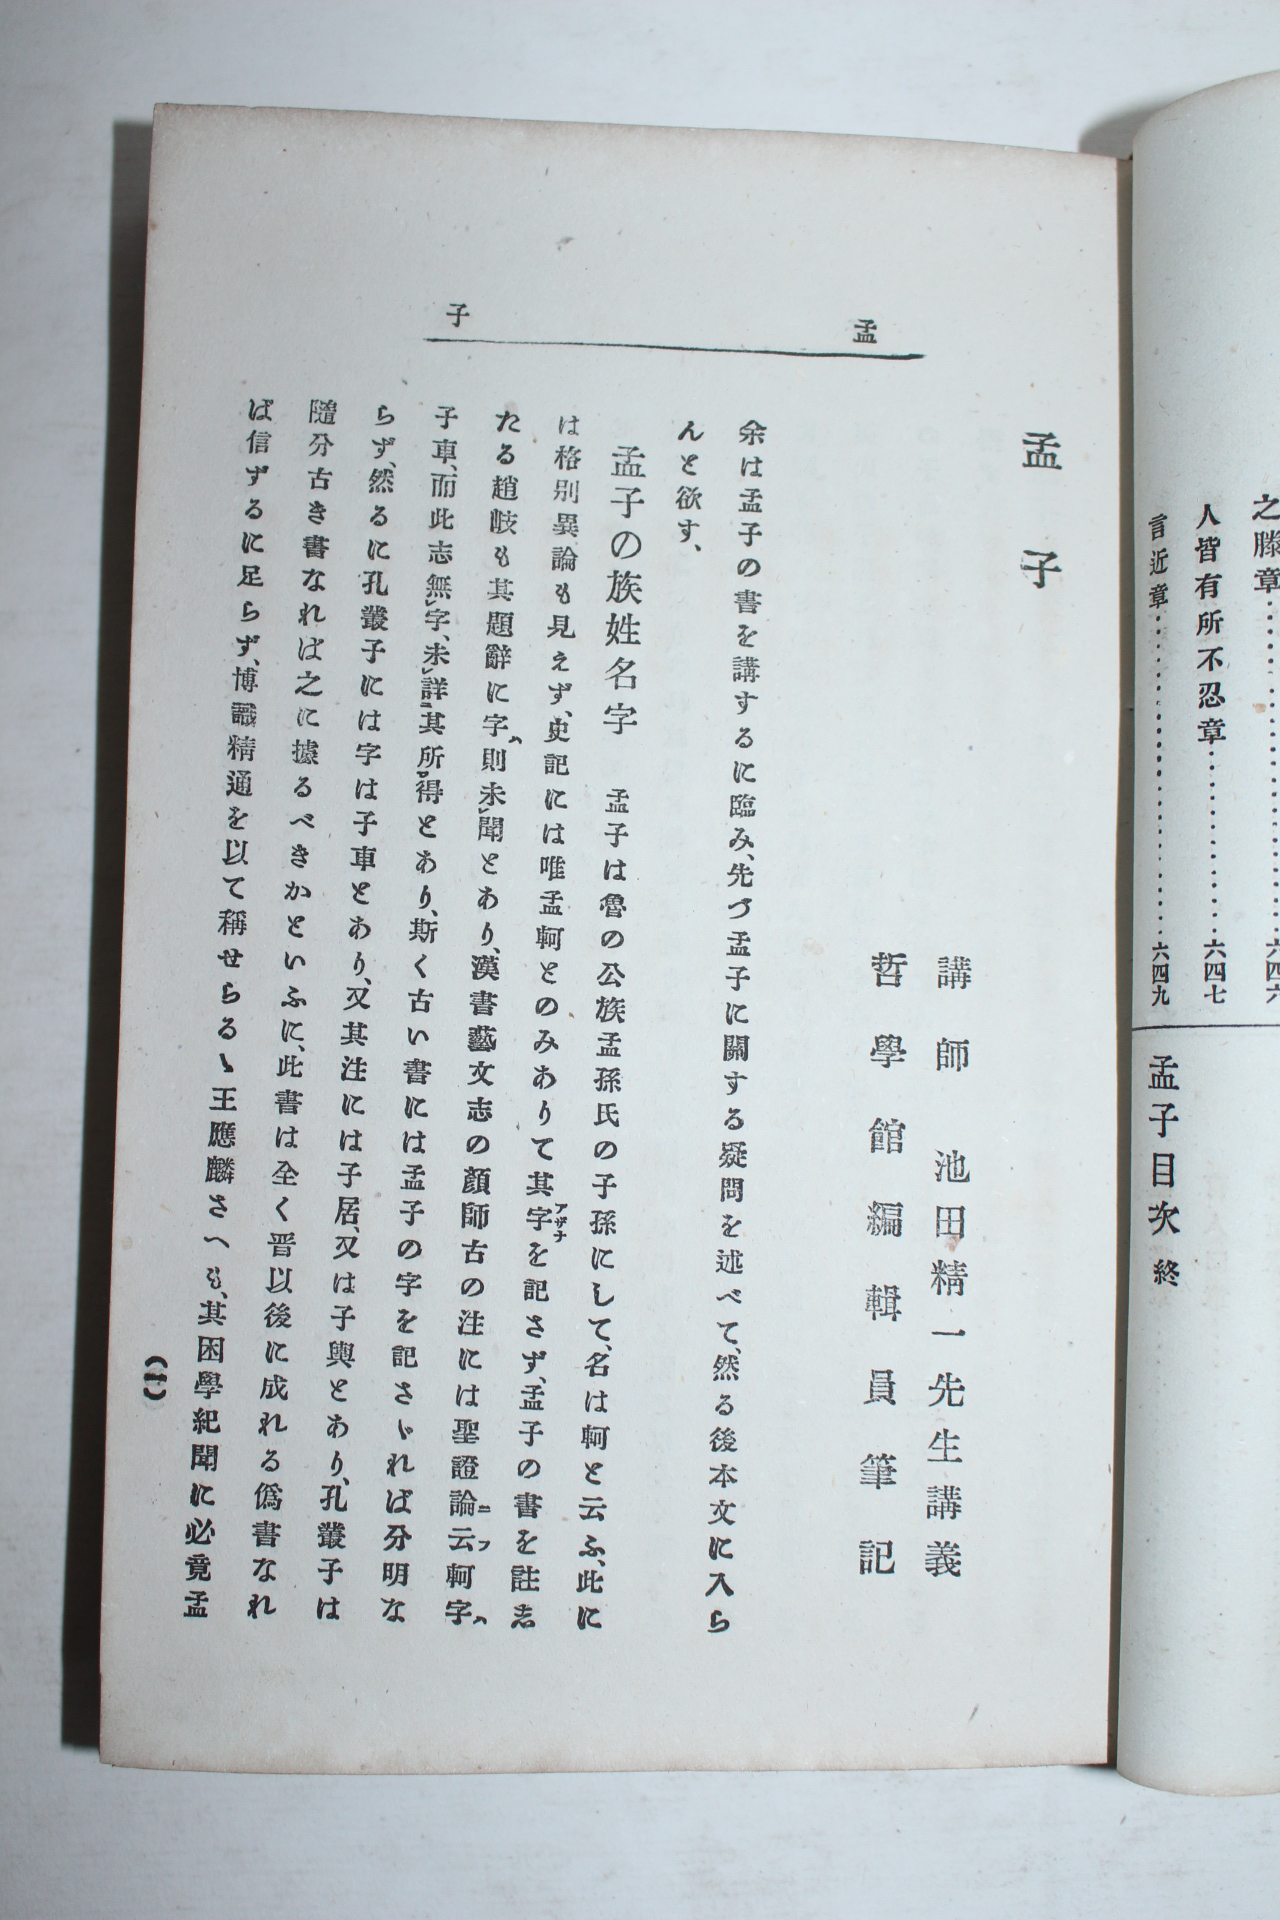 之滕章……………六四六
人皆有所不忍章……………六四七
言近章……………六四九
孟子目次終
孟子
孟子
講師 池田精一先生講義
哲學館編輯員筆記
余は孟子の書を講するに臨み、先づ孟子に關する疑問を述べて、然る後本文に入ら
んと欲す、
孟子の族姓名字 孟子は魯の公族孟孫氏の子孫にして、名は軻と云ふ、此に
は格別異論も見えず、史記には唯孟軻とのみありて其字アザナを記さず、孟子の書を註志
たる趙岐も其題辭に字ハ則未レ聞とあり、漢書藝文志の顏師古の注には聖證論ニ云フ軻字ハ
子車、而此志無レ字、未レ詳ニ其所ロ得とあり、斯く古い書には孟子の字を記さゞれば分明な
らず、然るに孔叢子には字は子車とあり、又其注には子居、又は子輿とあり、孔叢子は
隨分古き書なれば之に據るべきかといふに、此書は全く晋以後に成れる僞書なれ
ば信ずるに足らず、博識精通を以て稱せらるゝ王應麟さへも、其困學紀聞に必竟孟
(一)